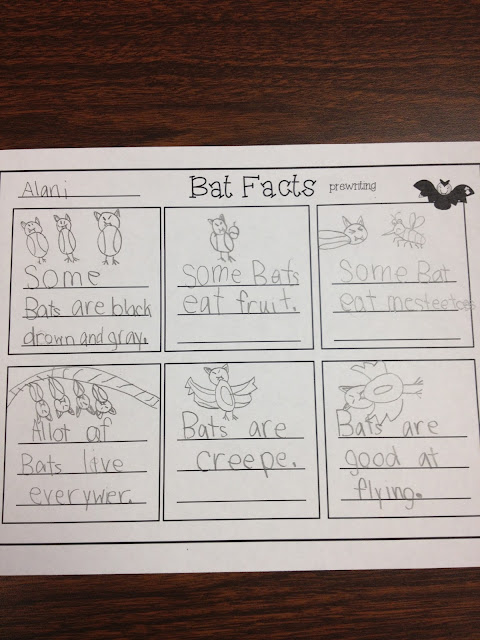 Alani
Bat Facts prewriting
Some
Bats are black
drown and gray.
Some Bats
eat fruit.
Some Bat
eat mesteetoes
Allot of
Bats live
everywer.
Bats are
creepe.
Bats are
good at
flying.